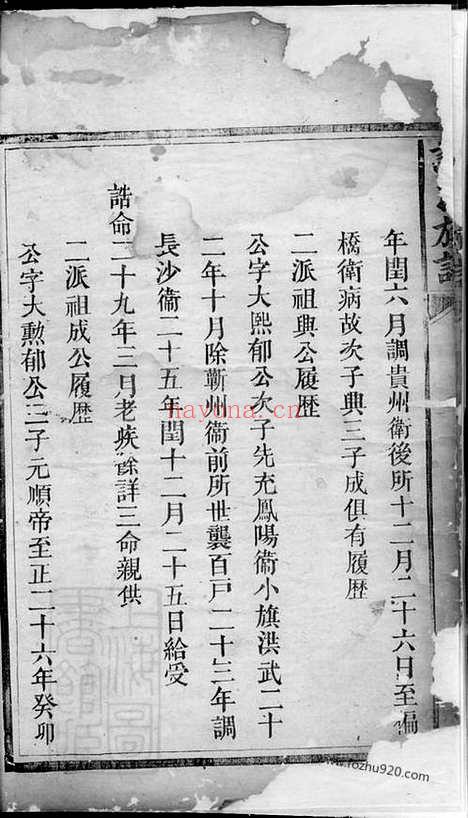 族譜
年閏六月調貴州衛後所十二月二十六日至偏
橋衛病故次子興三子成俱有履歷
二派祖興公履歷
公字大熙郁公次子先充鳳陽衛小旗洪武二十
二年十月除蘄州衛前所世襲百戶二十三年調
長沙衛二十五年閏十二月二十五日給受
誥命二十九年三月老疾餘詳三命親供
二派祖成公履歷
公字大勲郁公三子元順帝至正二十六年癸卯
hayona.cn
www.fozhu920.com